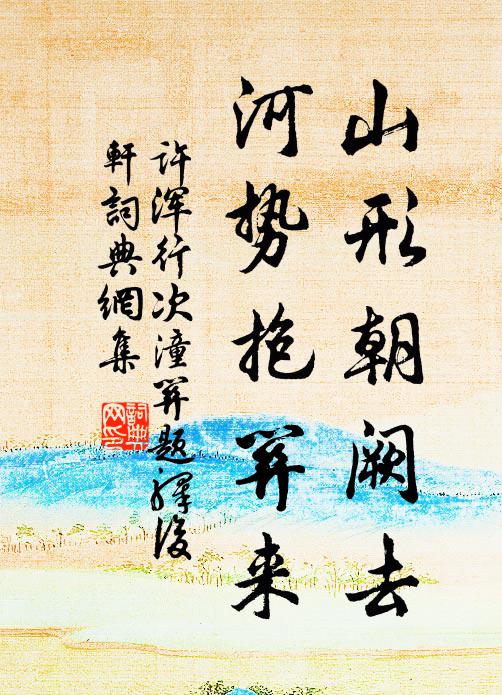 山形朝阙去
河势抱关来
许浑行次潼关题驿後
軒詞典網集